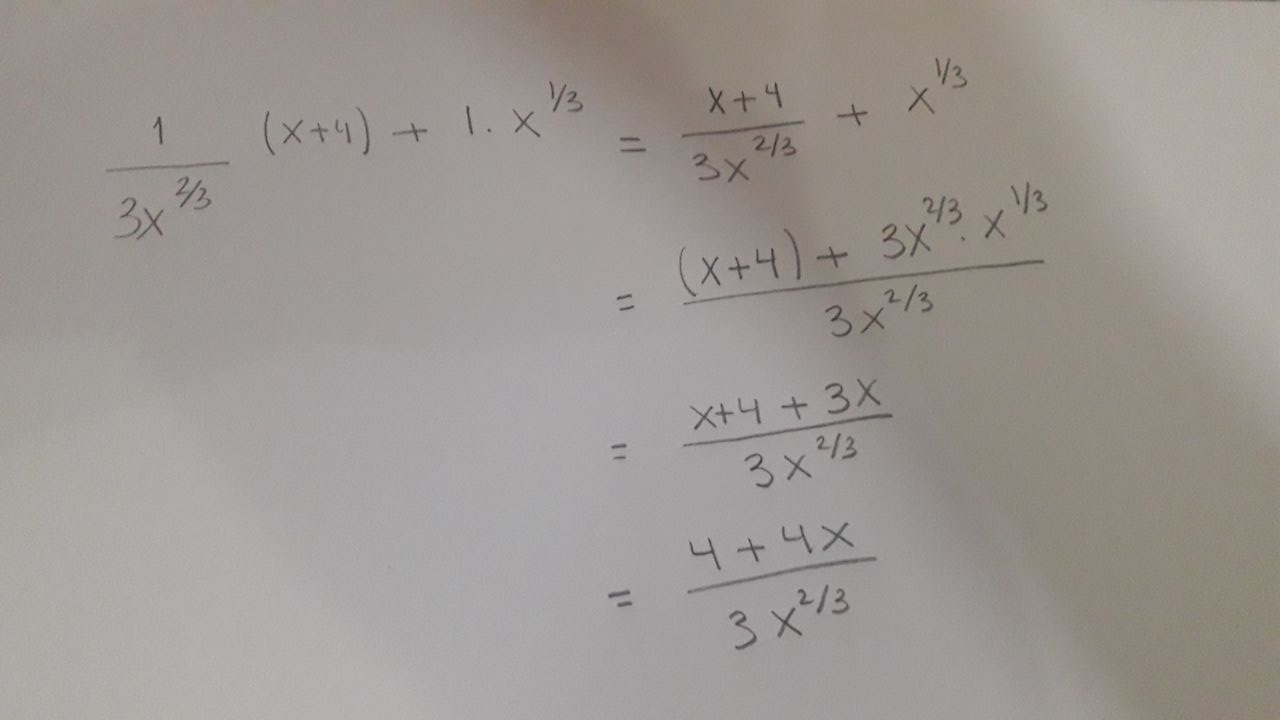 1/(3x^(2/3)) (x+4) + 1 · x^(1/3) = (x+4)/(3x^(2/3)) + x^(1/3)
= ((x+4) + 3x^(2/3) · x^(1/3))/(3x^(2/3))
= (x+4 + 3x)/(3x^(2/3))
= (4 + 4x)/(3x^(2/3))